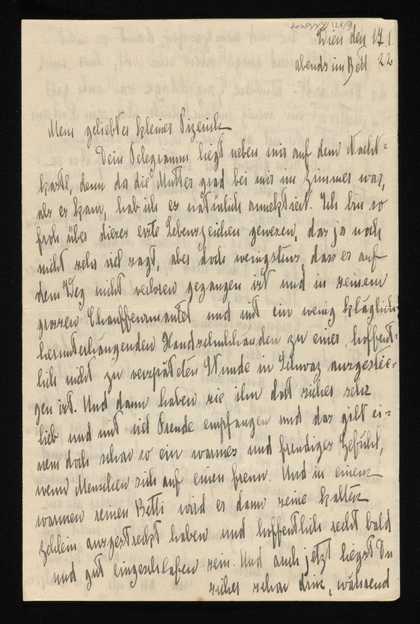 Wien den 17 I
abends im Bett 22
Mein geliebtes kleines
Dein Telegramm liegt neben mir auf dem Nacht-
kastl, denn da die Mutter grad bei mir im Zimmer war,
als es kam, hab ich es natürlich annektiert. Ich bin so
froh über dieses erste Lebenszeichen gewesen, das ja noch
nicht sehr viel sagt, aber doch wenigstens dass er auf
dem Weg nicht verloren gegangen ist und in seinem
grossen Chauffeurmantel und mit ein wenig kläglich
herunterhängenden Handschuhhanden zu einer hoffent-
lich nicht zu verspäteten Stunde in Schwaz ausgestie-
gen ist. Und dann haben sie ihn dort sicher sehr
lieb und mit viel Freude empfangen und das gibt ei-
nem doch schon so ein warmes und freudiges Gefühl,
wenn Menschen sich auf einen freun. Und in einem
warmen reinen Betti wird er dann seine kalten
Zehlein ausgestreckt haben und hoffentlich recht bald
und gut eingeschlafen sein. Und auch jetzt liegst Du
sicher schon drin, während